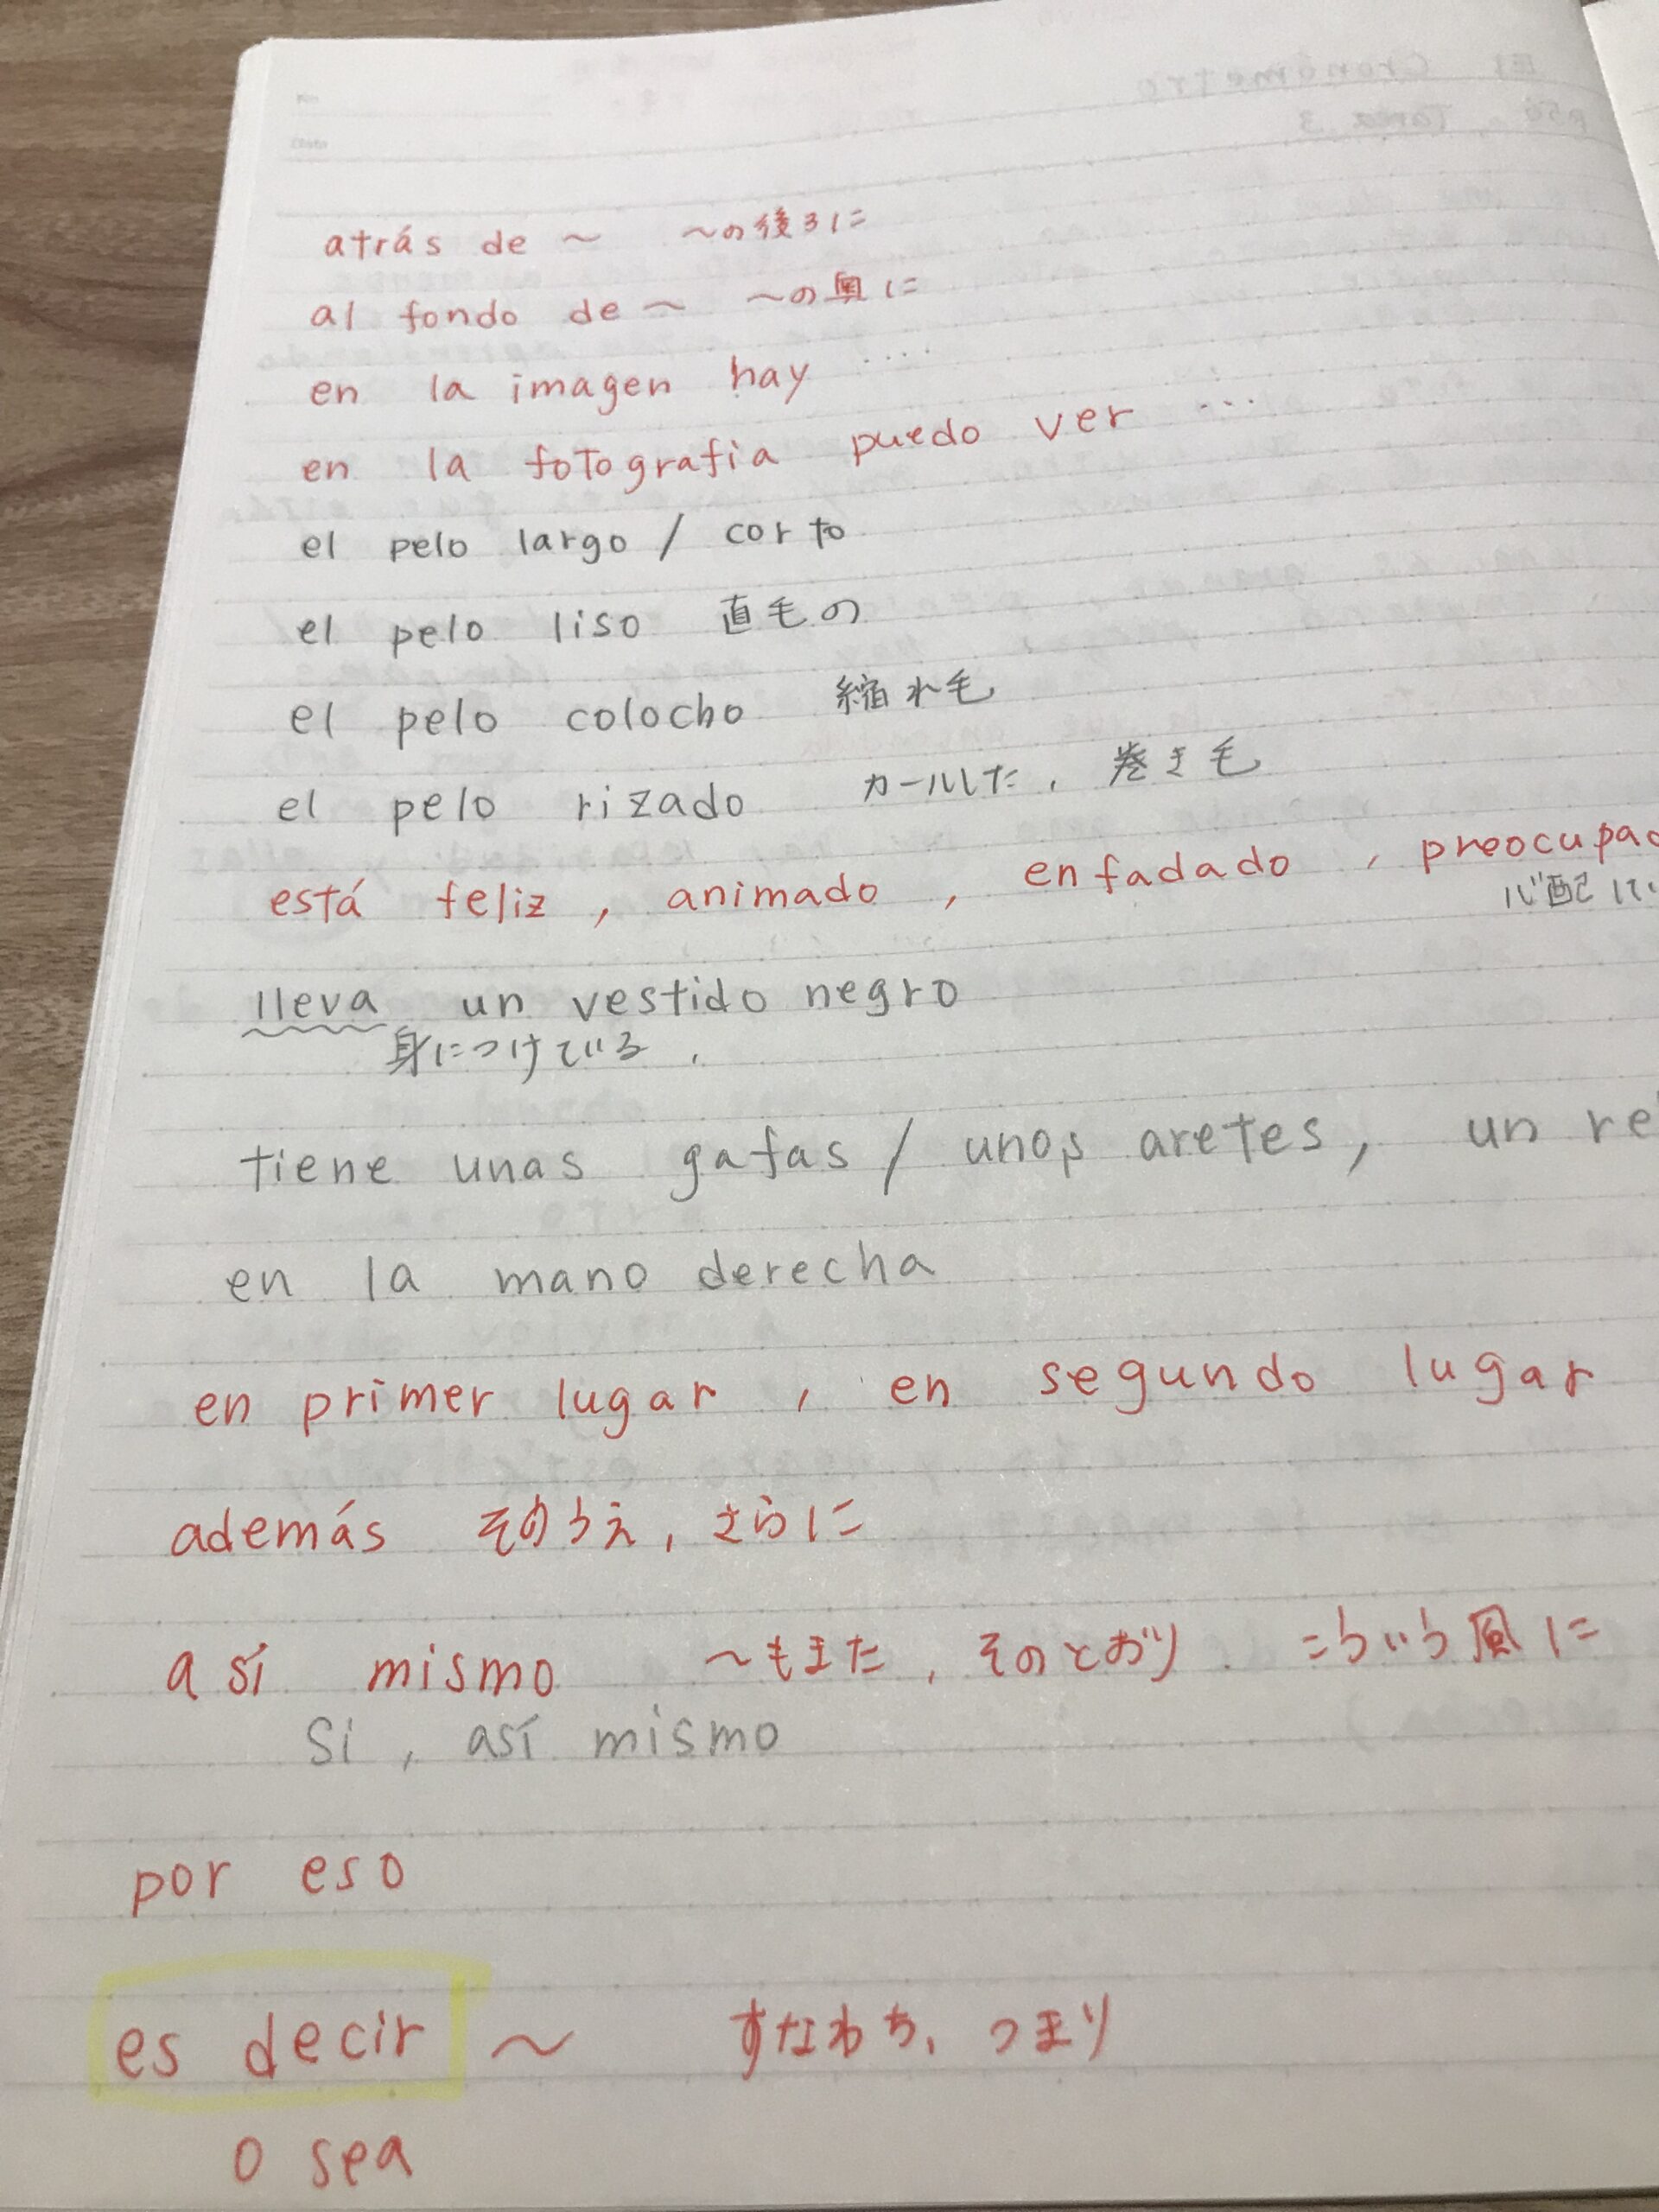 atrás de ～ ～の後ろに
al fondo de ～ ～の奥に
en la imagen hay ....
en la fotografia puedo ver ...
el pelo largo / corto
el pelo liso 直毛の
el pelo colocho 縮れ毛
el pelo rizado カールした, 巻き毛
está feliz , animado , enfadado , preocupad
心配して
lleva un vestido negro
身につけている ,
tiene unas gafas / unos aretes, un re
en la mano derecha
en primer lugar , en segundo lugar
además そのうえ, さらに
así mismo ～もまた, そのとおり こういう風に
Si , así mismo
por eso
es decir ～ すなわち, つまり
o sea